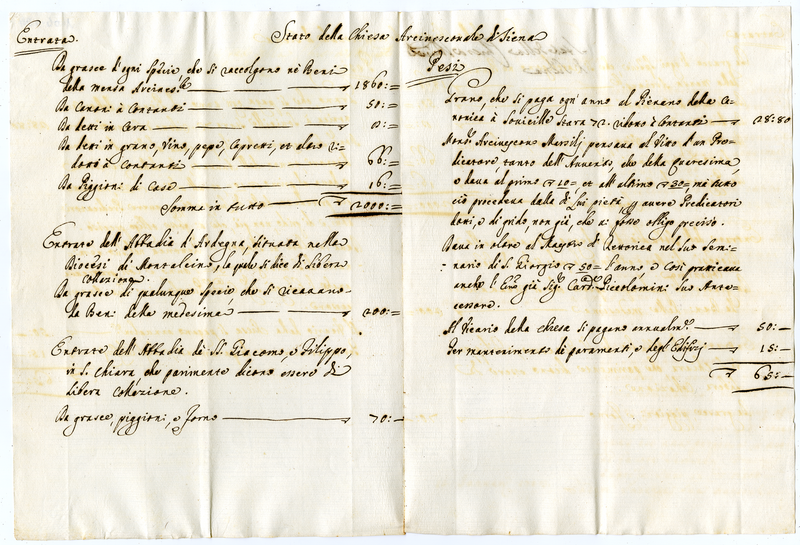 Stato della Chiesa Arcivescovale di Siena
Entrata.
Da grasce d'ogni spezie, che si raccolgono nè Beni
della mensa Arcives.le 1860:=
Da Censi à Contanti 50:=
Da detti in Cera
Da detti in grano, Vino, pepe, Capretti, et altro ri-
dotti à Contanti 66:=
Da Piggioni di Case 16:=
Somma in tutto 2000:=
Entrate dell'Abbadia d'Ardegna, situata nella
Diocesi di Montalcino, la quale si dice di libera
collazione.
Da grasce di qualunque spezie, che si ricavano
da Beni della medesima 200:=
Entrate dell'Abbadia di SS. Giacomo, e Filippo,
in S. Chiara che parimente dicono essere di
libera collazione.
Da grasce, piggioni, e forno 70:=
Pesi
Grano, che si paga ogn'anno al Pievano della Ca-
nonica à Stara 72. ridotto à Contanti 28:80
Mons.r Arcivescovo Marsilj pensava al Vitto d'un Pre-
dicatore, tanto dell'Avvento, che della Quaresima,
e dava al primo 10= et all'altimo 30=, mà tutto
ciò procedeva dalla di lui pietà avere Predicatori
boni, e di grido, non già, che vi fosse obligo preciso.
Dava in oltre al Maestro di Rettorica nel suo Semi-
nario di S. Giorgio 50= l'anno, e così praticava
anche l'Emo già Sig.r Card. Piccolomini suo Ante-
cessore.
Al Vicario della chiesa si pagano annualm.te 50:=
Per mantenimento di paramenti, e degl'Edifizj 15:=
65:=